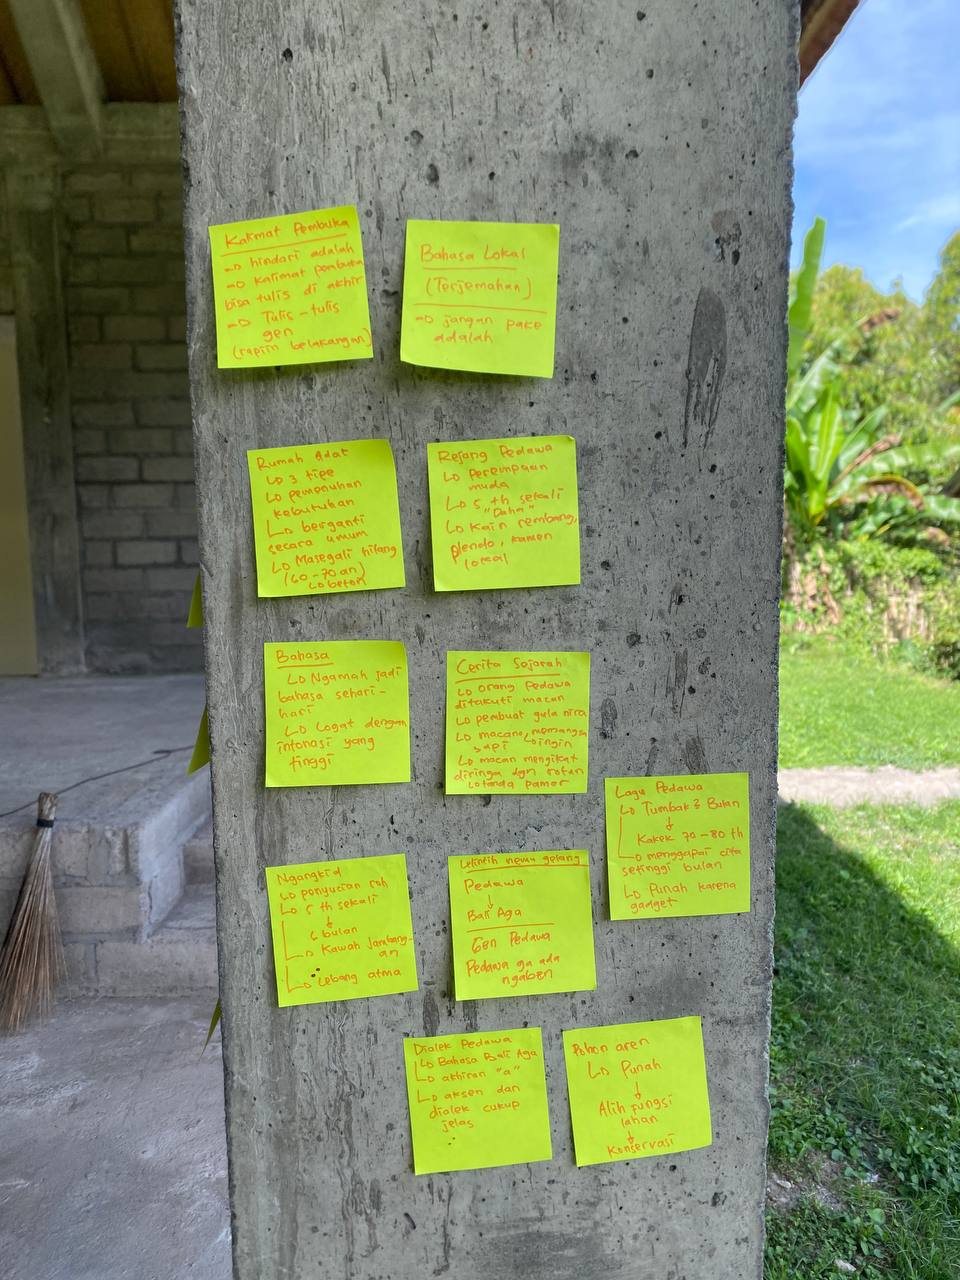 Kalimat Pembuka
→ hindari adalah
→ kalimat pembuka
bisa tulis di akhir
→ Tulis-tulis
gen
(rapiin belakangan)
Bahasa Lokal
(Terjemahan)
→ jangan pake
adalah
Rumah Adat
↳ 3 tipe
↳ pemenuhan
kebutuhan
↳ berganti
secara umum
↳ Masegali hilang
(60-70 an)
↳ beton
Rejang Pedawa
↳ Perempuan
muda
↳ 5 th sekali
"Daha"
↳ Kain rembang,
plendo, kamen
lokal
Bahasa
↳ Ngamah jadi
bahasa sehari-
hari
↳ Logat dengan
intonasi yang
tinggi
Cerita Sejarah
↳ orang Pedawa
ditakuti macan
↳ pembuat gula nira
↳ macan, memangsa
sapi ↳ ingin
↳ macan mengikat
diringa dgn rotan
↳ tanda pamer
Lagu Pedawa
↳ Tumbak 2 Bulan
↓
Kakek 70-80 th
↳ menggapai cita
setinggi bulan
↳ Punah karena
gadget
Ngangkid
↳ penyucian roh
↳ 5 th sekali
↓
6 bulan
↳ Kawah Jambang-
an
↳ Lebang atma
nemu gelang
Pedawa
↓
Bali Aga
Gen Pedawa
Pedawa ga ada
ngaben
Dialek Pedawa
↳ Bahasa Bali Aga
↳ akhiran "a"
↳ aksen dan
dialek cukup
jelas
Pohon aren
↳ Punah
↓
Alih fungsi
lahan
↓
Konservasi